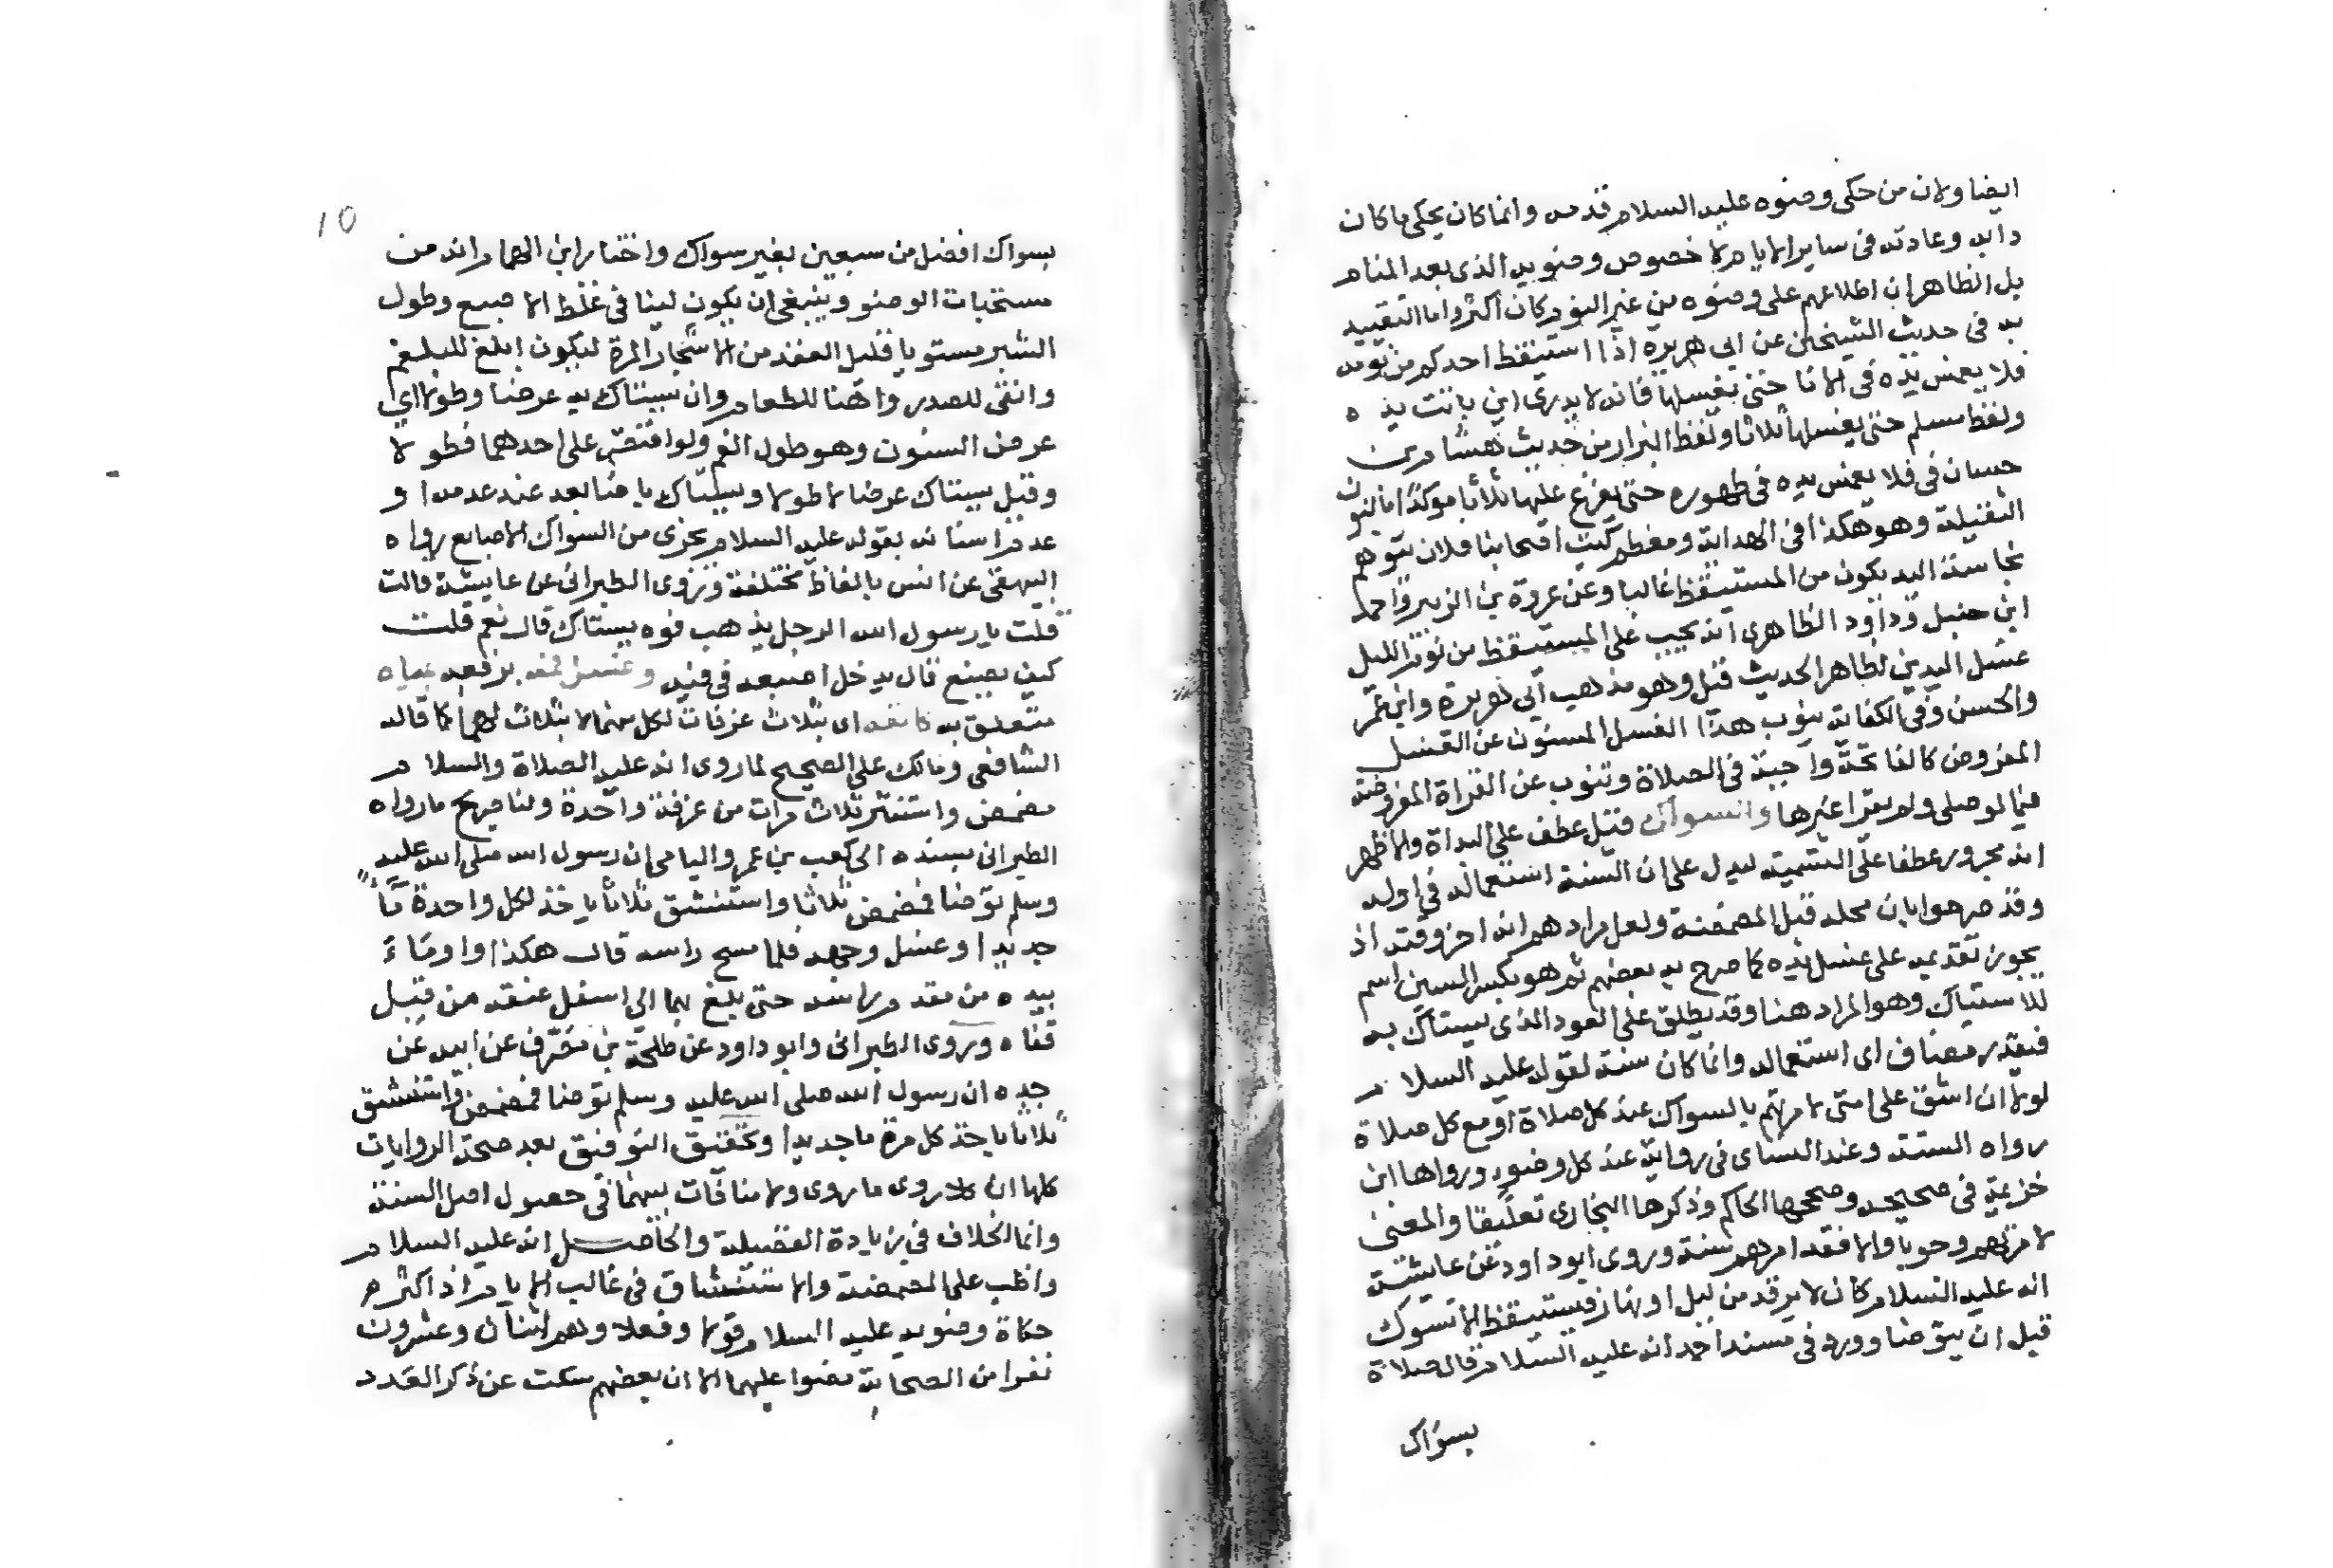 ايضا ولان من حكى وضوه عليه السلام قدمه وانما كان يحكى ما كان
دابه وعادته فى ساير الايام لا خصوص وضويه الذى بعد المنام
بل الظاهر ان اطلاعهم على وضوه من غير النوم كان اكثر واما التقييد
به فى حديث الشيخين عن ابى هريرة اذا استيقظ احدكم من نومه
فلا يغمس يده فى الانا حتى يغسلها فانه لا يدرى اين باتت يده
ولفظ مسلم حتى يغسلها ثلاثا ولفظ البزار من حديث هشام بن
حسان فى فلا يغمس يده فى طهوره حتى يفرغ عليها ثلاثا موكدا بالنون
الثقيلة وهو هكذا فى الهداية ومعظم كتب اصحابنا فلان توهم
نجاسة اليد يكون من المستيقظ غالبا وعن عروة بن الزبير واحمد
ابن حنبل وداود الظاهرى انه يجب على المستيقظ من نوم الليل
غسل اليدين لظاهر الحديث قيل وهو مذهب ابى هريرة وابن عمر
والحسن وفى الكفاية ينوب هذا الغسل المسنون عن الغسل
المفروض كالفاتحة واجبة فى الصلاة وتنوب عن القراة المفروضة
فيما لو صلى ولم يقرا غيرها والسواك قيل عطف على البداة والاظهر
انه مجرور عطفا على التسمية ليدل على ان السنة استعماله فى اوله
وقد صرحوا بان محله قبل المضمضة ولعل مرادهم انه اخر وقته اذ
يجوز تقديمه على غسل يده كما صرح به بعضهم ثم هو بكسر السين اسم
للاستياك وهو المراد هنا وقد يطلق على العود الذى يستاك به
فيقدر مضاف اى استعماله وانما كان سنة لقوله عليه السلام
لولا ان اشق على امتى لامرتهم بالسواك عند كل صلاة او مع كل صلاة
رواه الستة وعند النساى فى رواية عند كل وضوء ورواها ابن
خزيمة فى صحيحه وصححها الحاكم وذكرها البخارى تعليقا والمعنى
لامرتهم وجوبا والا فقد امرهم سنة وروى ابو داود عن عايشة
انه عليه السلام كان لا يرقد من ليل او نهار فيستيقظ الا تسوك
قبل ان يتوضا وورد فى مسند احمد انه عليه السلام قال صلاة
بسواك
10
بسواك افضل من سبعين بغير سواك واختار ابن الهمام انه من
مستحبات الوضو وينبغى ان يكون لينا فى غلظ الاصبع وطول
الشبر مستويا قليل العقد من الاشجار المرة ليكون ابلغ للبلغم
وانقى للصدر واهنا للطعام وان يستاك به عرضا وطولا اى
عرض السنون وهو طول الفم ولو اقتصر على احدهما فطولا
وقيل يستاك عرضا لا طولا ويستاك باصابعه عند عدمه او
عدم اسنانه بقوله عليه السلام يجزى من السواك الاصابع رواه
البيهقى عن انس بالفاظ مختلفة وروى الطبرانى عن عايشة قالت
قلت يا رسول الله الرجل يذهب فوه يستاك قال نعم قلت
كيف يصنع قال يدخل اصبعه فى فيه وغسل فمه بمياه
متعلق به كانفه اى بثلاث غرفات لكل منهما لا بثلاث لهما كما قاله
الشافعى ومالك على الصحيح لما روى انه عليه الصلاة والسلام
مضمض واستنثر ثلاث مرات من غرفة واحدة ولنا صريح ما رواه
الطبرانى بسنده الى كعب بن عمرو اليامى ان رسول الله صلى الله عليه
وسلم توضا فمضمض ثلاثا واستنشق ثلاثا ياخذ لكل واحدة مآء
جديدا وغسل وجهه فلما مسح راسه قال هكذا واومآء
بيده من مقدم راسه حتى بلغ بهما الى اسفل عنقه من قبل
قفاه وروى الطبرانى وابو داود عن طلحة بن مصرف عن ابيه عن
جده ان رسول الله صلى الله عليه وسلم توضا فمضمض واستنشق
ثلاثا ياخذ كل مرة ماجديدا وتحقيق التوفيق بعد صحة الروايات
كلها ان كلا روى ما روى ولا منافات بينهما فى حصول اصل السنة
وانما الخلاف فى زيادة الفضيلة والحاصل انه عليه السلام
واظب على المضمضة والاستنشاق فى غالب الايام اذ اكثرهم
حكاة وضويه عليه السلام قولا وفعلا وهم اثنان وعشرون
نفرا من الصحابة نصوا عليهما الا ان بعضهم سكت عن ذكر العدد